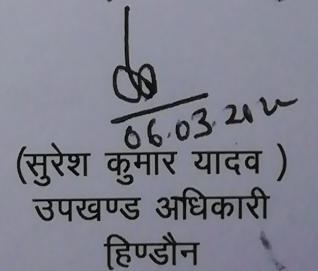 06.03.2022
(सुरेश कुमार यादव )
उपखण्ड अधिकारी
हिण्डौन